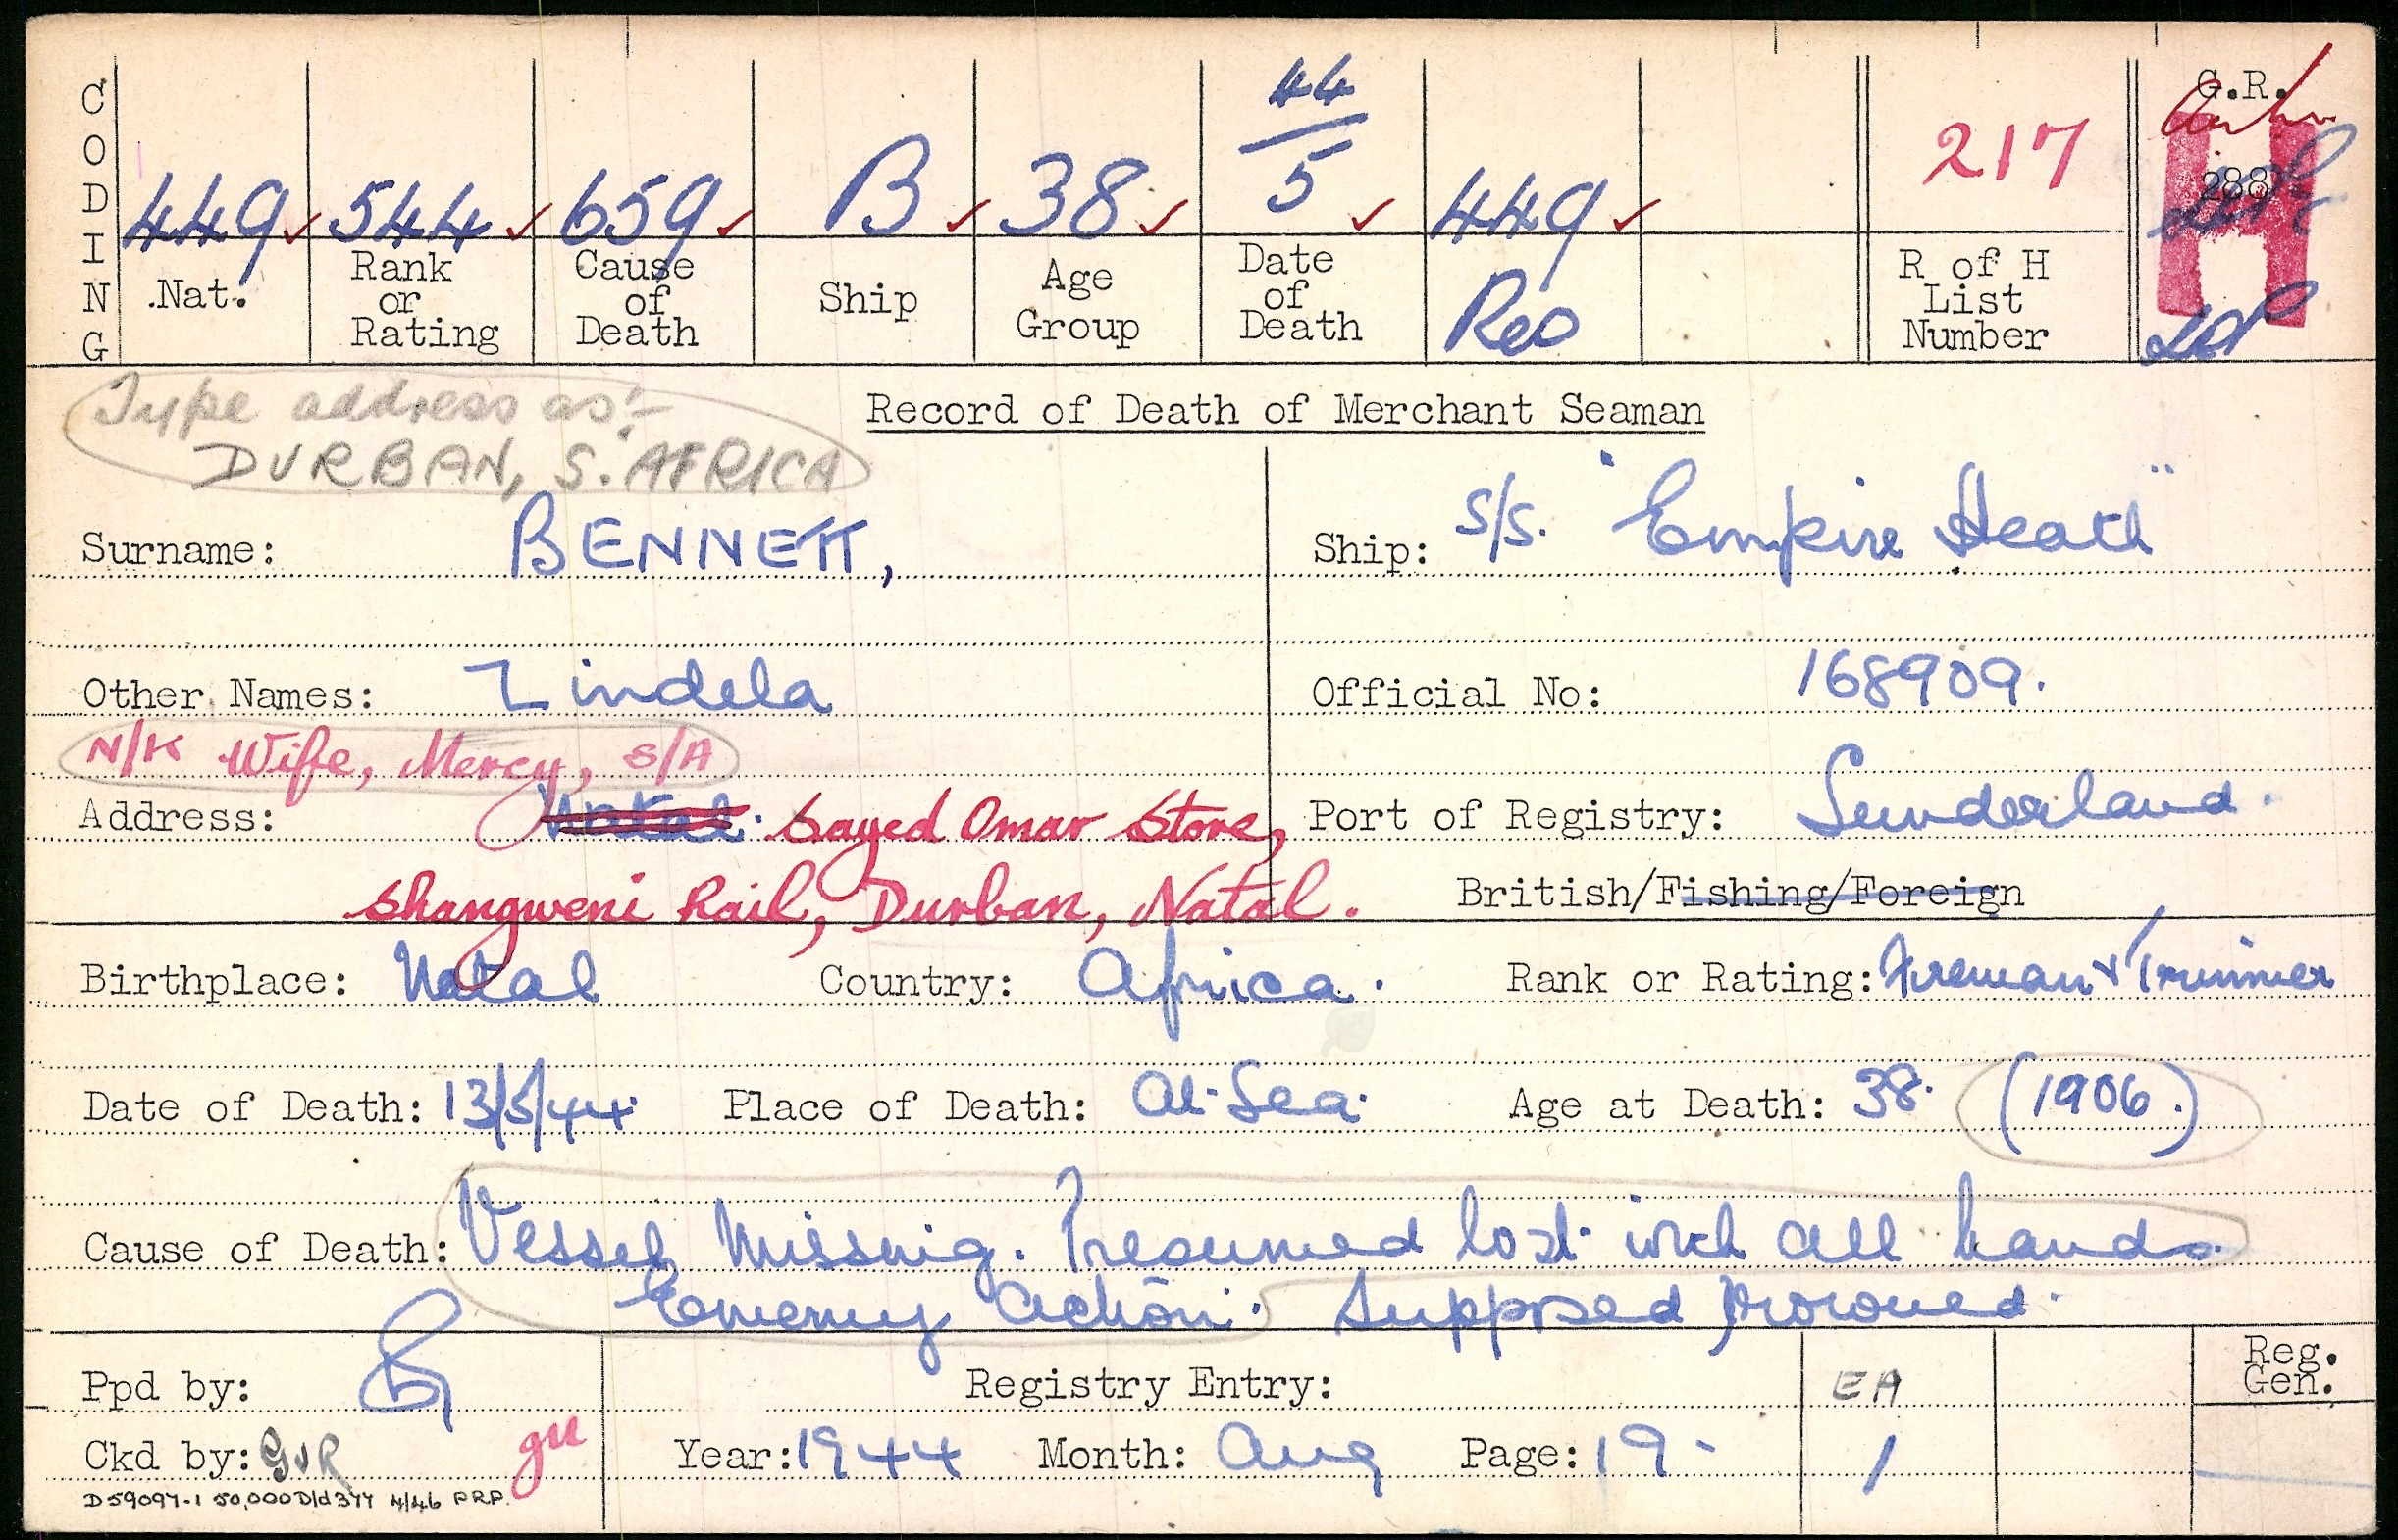 CODING
449 544 659 B 38 44/5 449 217 G.R.
288
H
Nat. Rank or Rating Cause of Death Ship Age Group Date of Death Res R of H List Number
Type address as:-
DURBAN, S. AFRICA
Record of Death of Merchant Seaman
Surname: BENNETT,
Ship: s/s. "Empire Heath"
Other Names: Zindela
Official No: 168909.
N/K Wife, Mercy, S/A
Address: Natal. Sayed Omar Store,
Port of Registry: Sunderland.
Shangweni Rail, Durban, Natal.
British/Fishing/Foreign
Birthplace: Natal Country: Africa. Rank or Rating: Fireman & Trimmer
Date of Death: 13/5/44. Place of Death: At Sea. Age at Death: 38. (1906.)
Cause of Death: Vessel Missing. Presumed lost with all hands.
Enemy Action. Supposed Drowned.
Ppd by:
Registry Entry: EA Reg. Gen.
Ckd by: GJR
Year: 1944 Month: Aug Page: 19. 1
D59097-1 50,000 D/d 377 4/46 P.R.P.